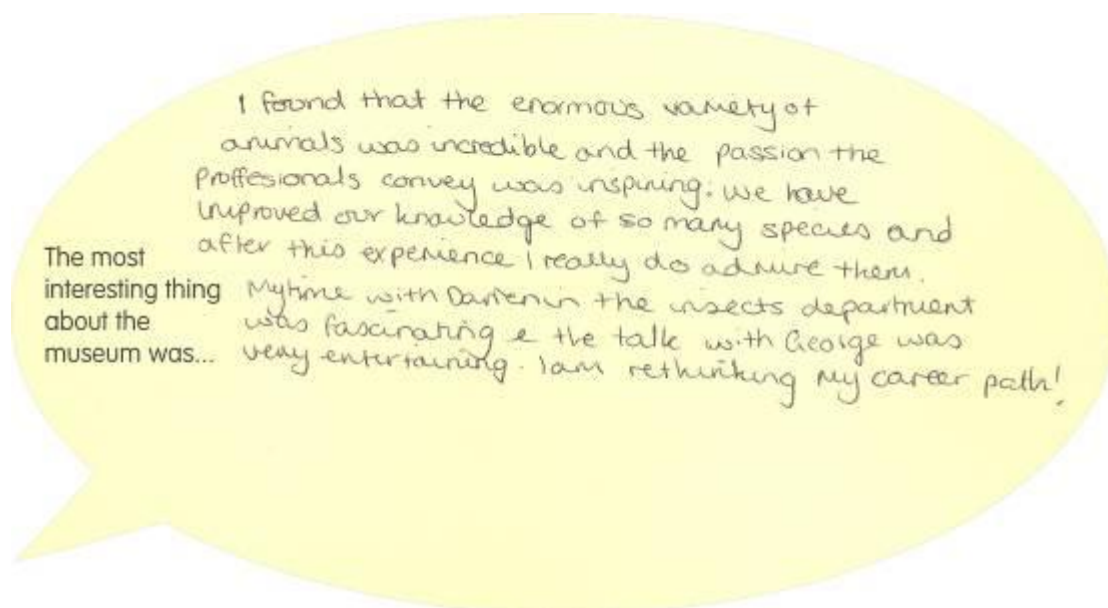 The most
interesting thing
about the
museum was...
I found that the enormous variety of
animals was incredible and the passion the
proffesionals convey was inspiring. we have
improved our knowledge of so many species and
after this experience I really do admire them.
My time with Darren in the insects department
was fascinating & the talk with George was
very entertaining. I am rethinking my career path!